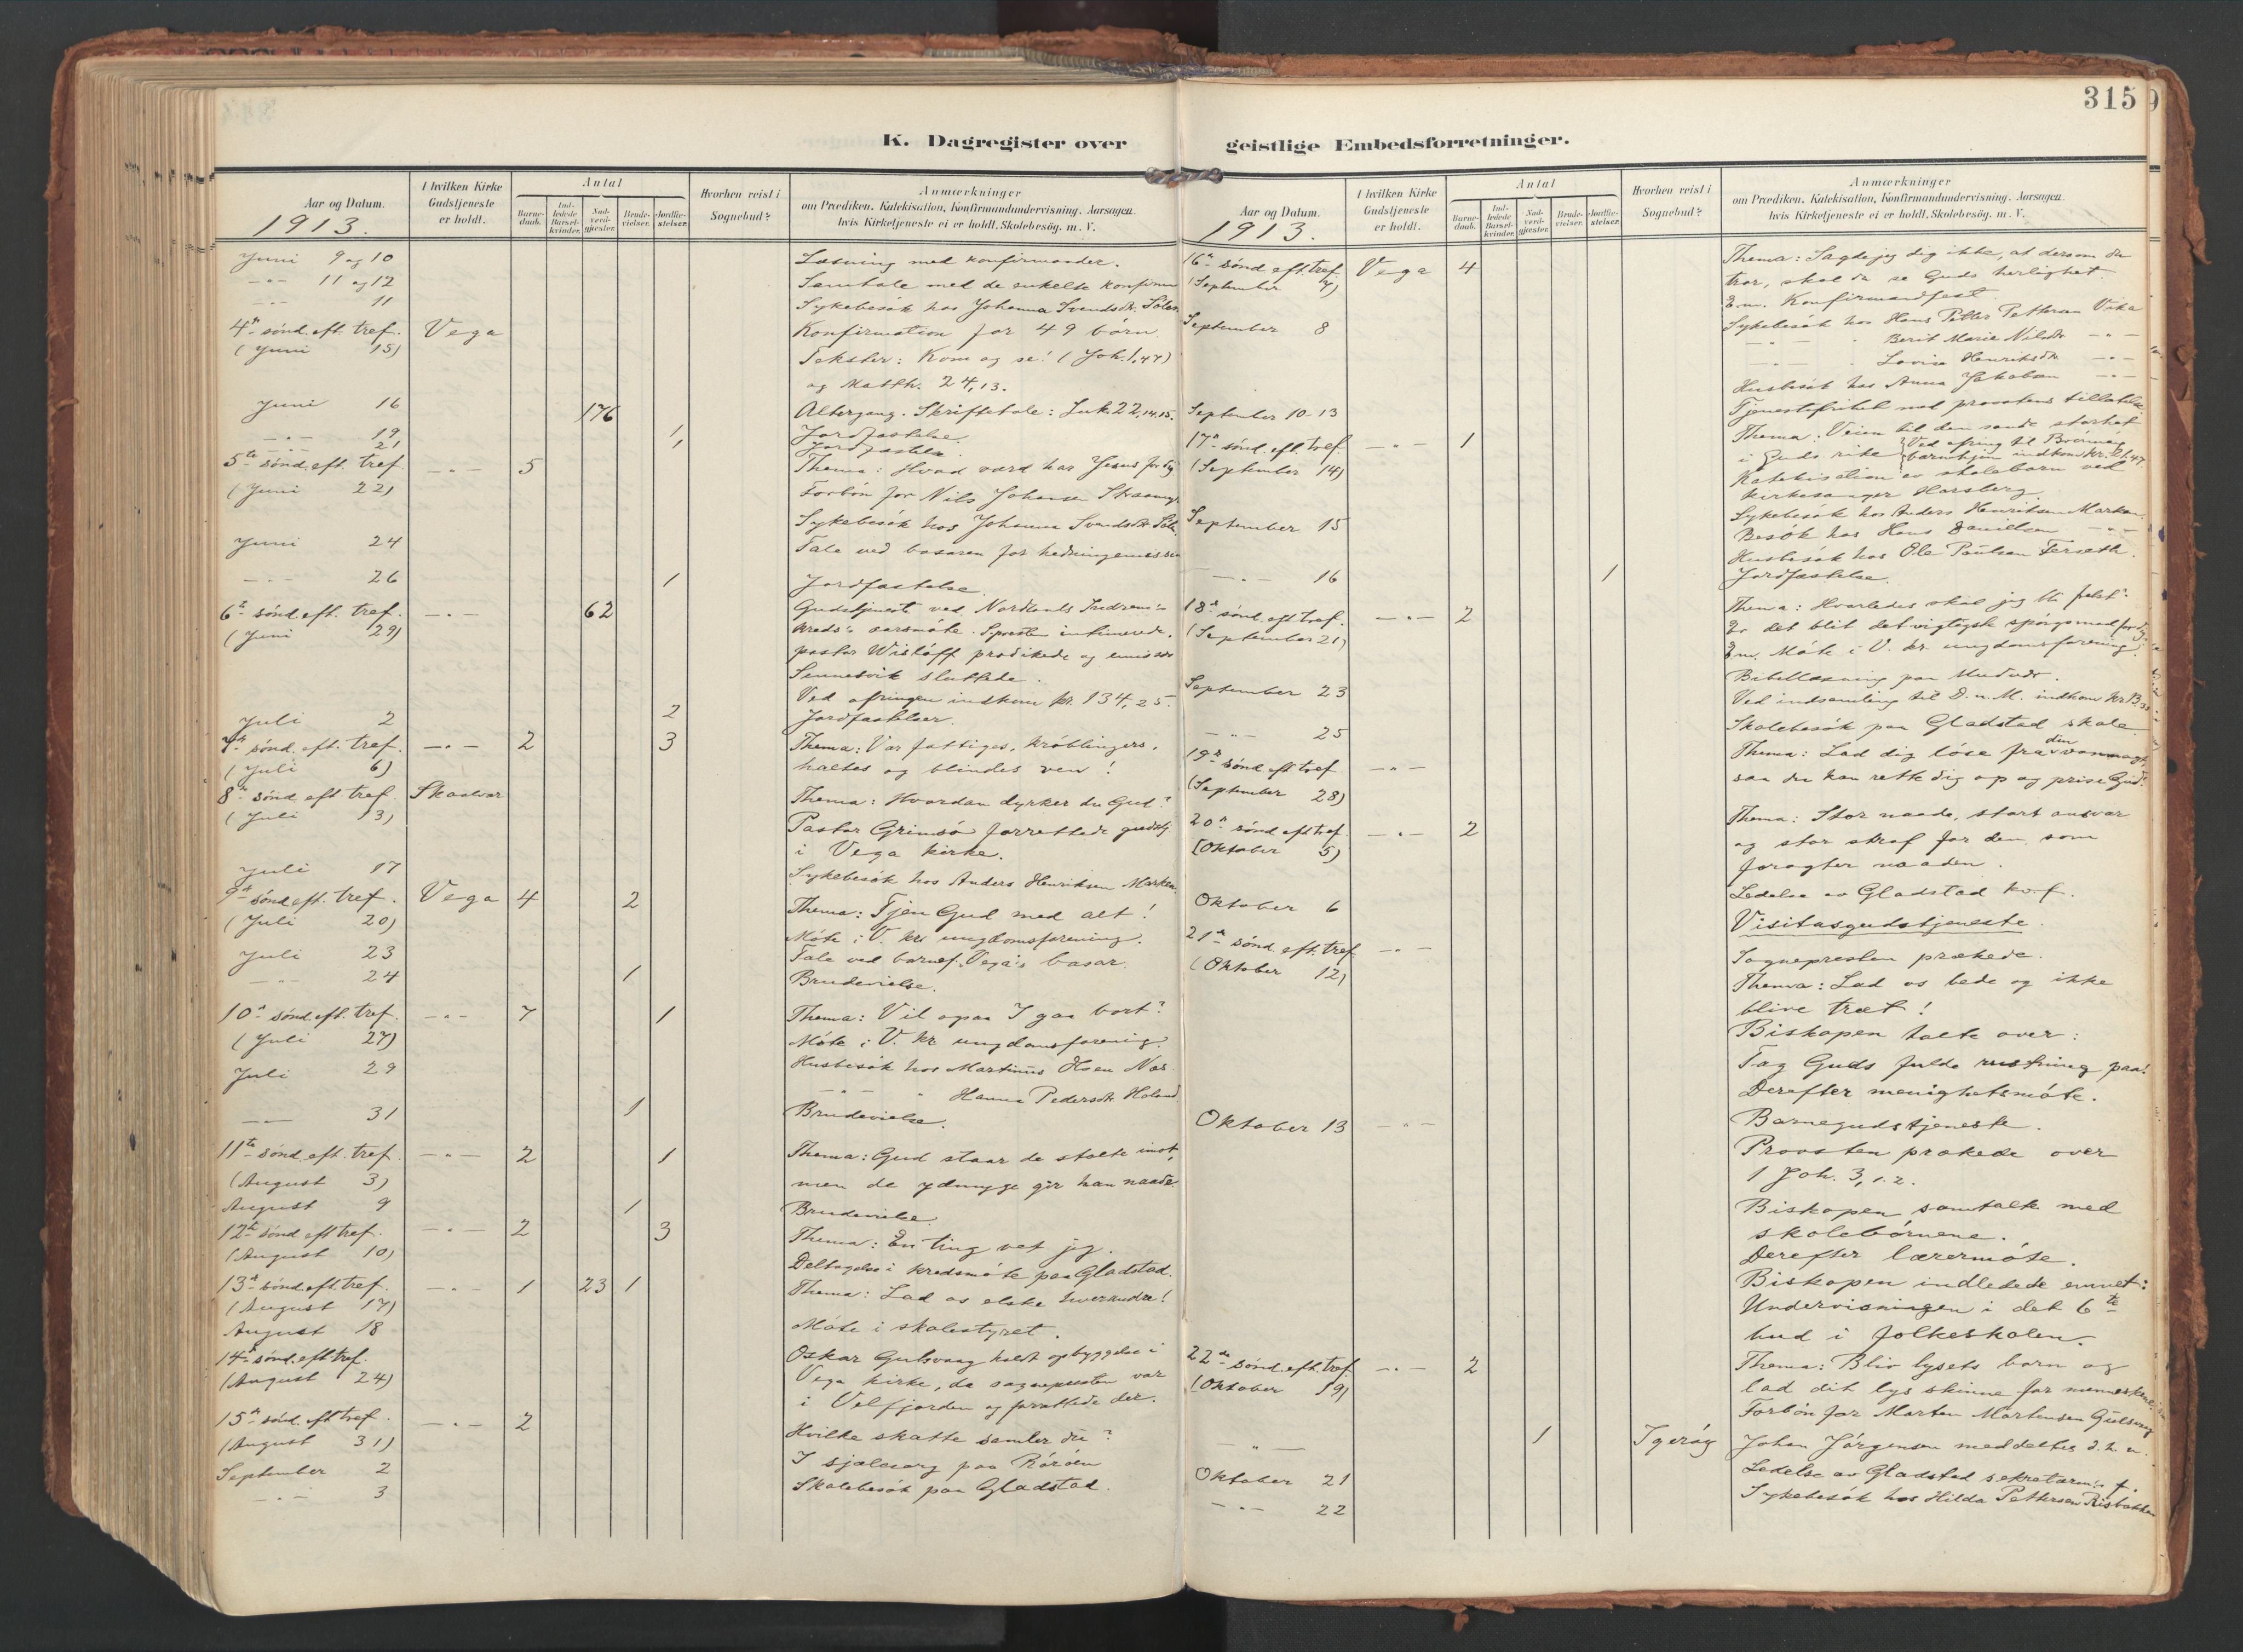 315
K. Dagregister over
geistlige Embedsforretninger.
Aar og Datum.
1913.
I hvilken Kirke Gudstjeneste er holdt.
Antal
Barne-daab.
Ind-ledede Barsel-kvinder.
Nad-verd-gjester.
Brude-vielser.
Jordfæ-stelser.
Hvorhen reist i Sognebud?
Anmærkninger
om Prædiken, Katekisation, Konfirmandundervisning, Aarsagen
hvis Kirketjeneste ei er holdt, Skolebesøg. m. V.
Juni 9 og 10 Læsning med konfirmander.
-"- 11 og 12 Samtale med de enkelte konfirm
-"- 11 Sykebesøk hos Johanna Svendsdr.
4de sønd. eft. tref. Vega Konfirmation for 49 børn
(Juni 15) Tekster: Kom og se! (Joh. 1,47)
og Matth. 24,13.
Juni 16 176 Altergang. Skriftetale: Luk. 22,14.15.
-"- 19 1 Jordfæstelse.
21 1 Jordfæstelse
5te sønd. eft. tref. -"- 5 Thema: Hvad værd har Jesus for dig
(Juni 22) Forbøn for Nils Johansen
Sykebesøk hos Johanna Svendsdr.
Juni 24 Tale ved basaren for hedningemission
-"- 26 1 Jordfæstelse.
6te sønd. eft. tref. -"- 62 Gudstjeneste ved Nordlands Indrem.s
(Juni 29) kreds's aarsmøte. S.presten intimerede,
pastor Wisløff prædikede og emissær
Sennesvik sluttede.
Ved ofringen indkom kr. 134,25.
Juli 2 2 Jordfæstelser.
7de sønd. eft. tref. -"- 2 3 Thema: Var fattiges, krøblingers,
(Juli 6) haltes og blindes ven!
8de sønd. eft. tref. Skaalvær Thema: Hvordan dyrker du Gud?
(Juli 13) Pastor Grimsø forrettede gudstj.
i Vega kirke.
Juli 17 Sykebesøk hos Anders Henriksen Marken.
9de sønd. eft. tref. Vega 4 2 Thema: Tjen Gud med alt!
(Juli 20) Møte i V. kr. ungdomsforening.
Juli 23 Tale ved barnef. Vega's basar.
-"- 24 1 Brudevielse.
10de sønd. eft. tref. -"- 7 1 Thema: Vil ogsaa I gaa bort?
(Juli 27) Møte i V. kr ungdomsforening.
Juli 29 Husbesøk hos Martinus Hsen Nes
-"- " Hanna Pedersdr. Holand
-"- 31 1 Brudevielse.
11te sønd. eft. tref. -"- 2 1 Thema: Gud staar de stolte imot,
(August 3) men de ydmyge gir han naade.
August 9 1 Brudevielse
12te sønd eft tref. -"- 2 3 Thema: En ting vet jeg.
(August 10) Deltagelse i kredsmøte paa Gladstad.
13de sønd eft tref. -"- 1 23 1 Thema: Lad os elske hverandre!
(August 17)
August 18 Møte i skolestyret.
14de sønd. eft tref. Oskar holdt opbyggelse i
(August 24) Vega kirke, da sognepresten var
i Velfjorden og forrettede der.
15de sønd. eft tref. -"- 2 Hvilke skatte samler du?
(August 31)
September 2 I sjælesorg paa Rørøen
-"- 3 Skolebesøk paa Gladstad.
Aar og Datum.
1913.
I hvilken Kirke Gudstjeneste er holdt.
Antal
Barne-daab.
Ind-ledede Barsel-kvinder.
Nad-verd-gjester.
Brude-vielser.
Jordfæ-stelser.
Hvorhen reist i Sognebud?
Anmærkninger
om Prædiken, Katekisation, Konfirmandundervisning, Aarsagen
hvis Kirketjeneste ei er holdt, Skolebesøg. m. V.
16de sønd. eft. tref. Vega 4 Thema: Sagde jeg dig ikke, at dersom du
(September 7) tror, skal du se Guds herlighet.
Em. Konfirmandfest.
September 8 Sykebesøk hos Hans Petter Pettersen Vika
-"- " Berit Marie Nilsdr. -"-
-"- " Lovise Henriksdr. -"-
Husbesøk hos Anna Jakobsen -"-
September 10-13 Tjenestefrihet med provstens tillatelse.
17de sønd. eft. tref. -"- 1 Thema: Veien til den sande storhet
(September 14) i Guds rike. Ved ofring til barnehjem indkom kr.
Katekisation av skolebørn ved
kirkesanger Horsberg.
September 15 Sykebesøk hos Anders Henriksen Marken.
Besøk hos Hans Danielsen -"-
Husbesøk hos Ole Paulsen
-"- 16 1 Jordfæstelse.
18de sønd. eft tref. -"- 2 Thema: Hvorledes skal jeg bli frelst?
(September 21) Er det blit det vigtigste spørgsmaal for dig.
Em. Møte i V. kr. ungdomsforening.
September 23 Bibellæsning paa
Ved indsamling til D. n. M. indkom kr.
-"- 25 Skolebesøk paa Gladstad skole
19de sønd. eft tref -"- Thema: Lad dig løse fra den vanmagt,
(September 28) saa du kan rette dig op og prise Gud.
20de sønd eft tref. -"- 2 Thema: Stor naade, stort ansvar
(Oktober 5) og stor straf for den, som
foragter naaden.
Oktober 6 Ledelse av Gladstad kv.f.
21de sønd. eft. tref -"- Visitasgudstjeneste.
(Oktober 12) Sognepresten prækede.
Thema: Lad os bede og ikke
blive træt!
Biskopen talte over:
Tag Guds fulde rustning paa!
Derefter menighetsmøte.
Oktober 13 -"- Barnegudstjeneste.
Provsten prækede over
1 Joh. 3,1.2.
Biskopen samtalte med
skolebørnene.
Derefter lærermøte.
Biskopen indledede emnet:
Undervisningen i det 6te
bud i folkeskolen.
22de sønd. eft. tref. -"- 2 Thema: Bliv lysets barn og
(Oktober 19) lad dit lys skinne for menneskene
Forbøn for Morten Mortensen
-"- 1 Johan Jørgensen meddeltes d. h. n.
Oktober 21 Ledelse av Gladstad f.
-"- 22 Sykebesøk hos Hilda Pettersen Risbakken